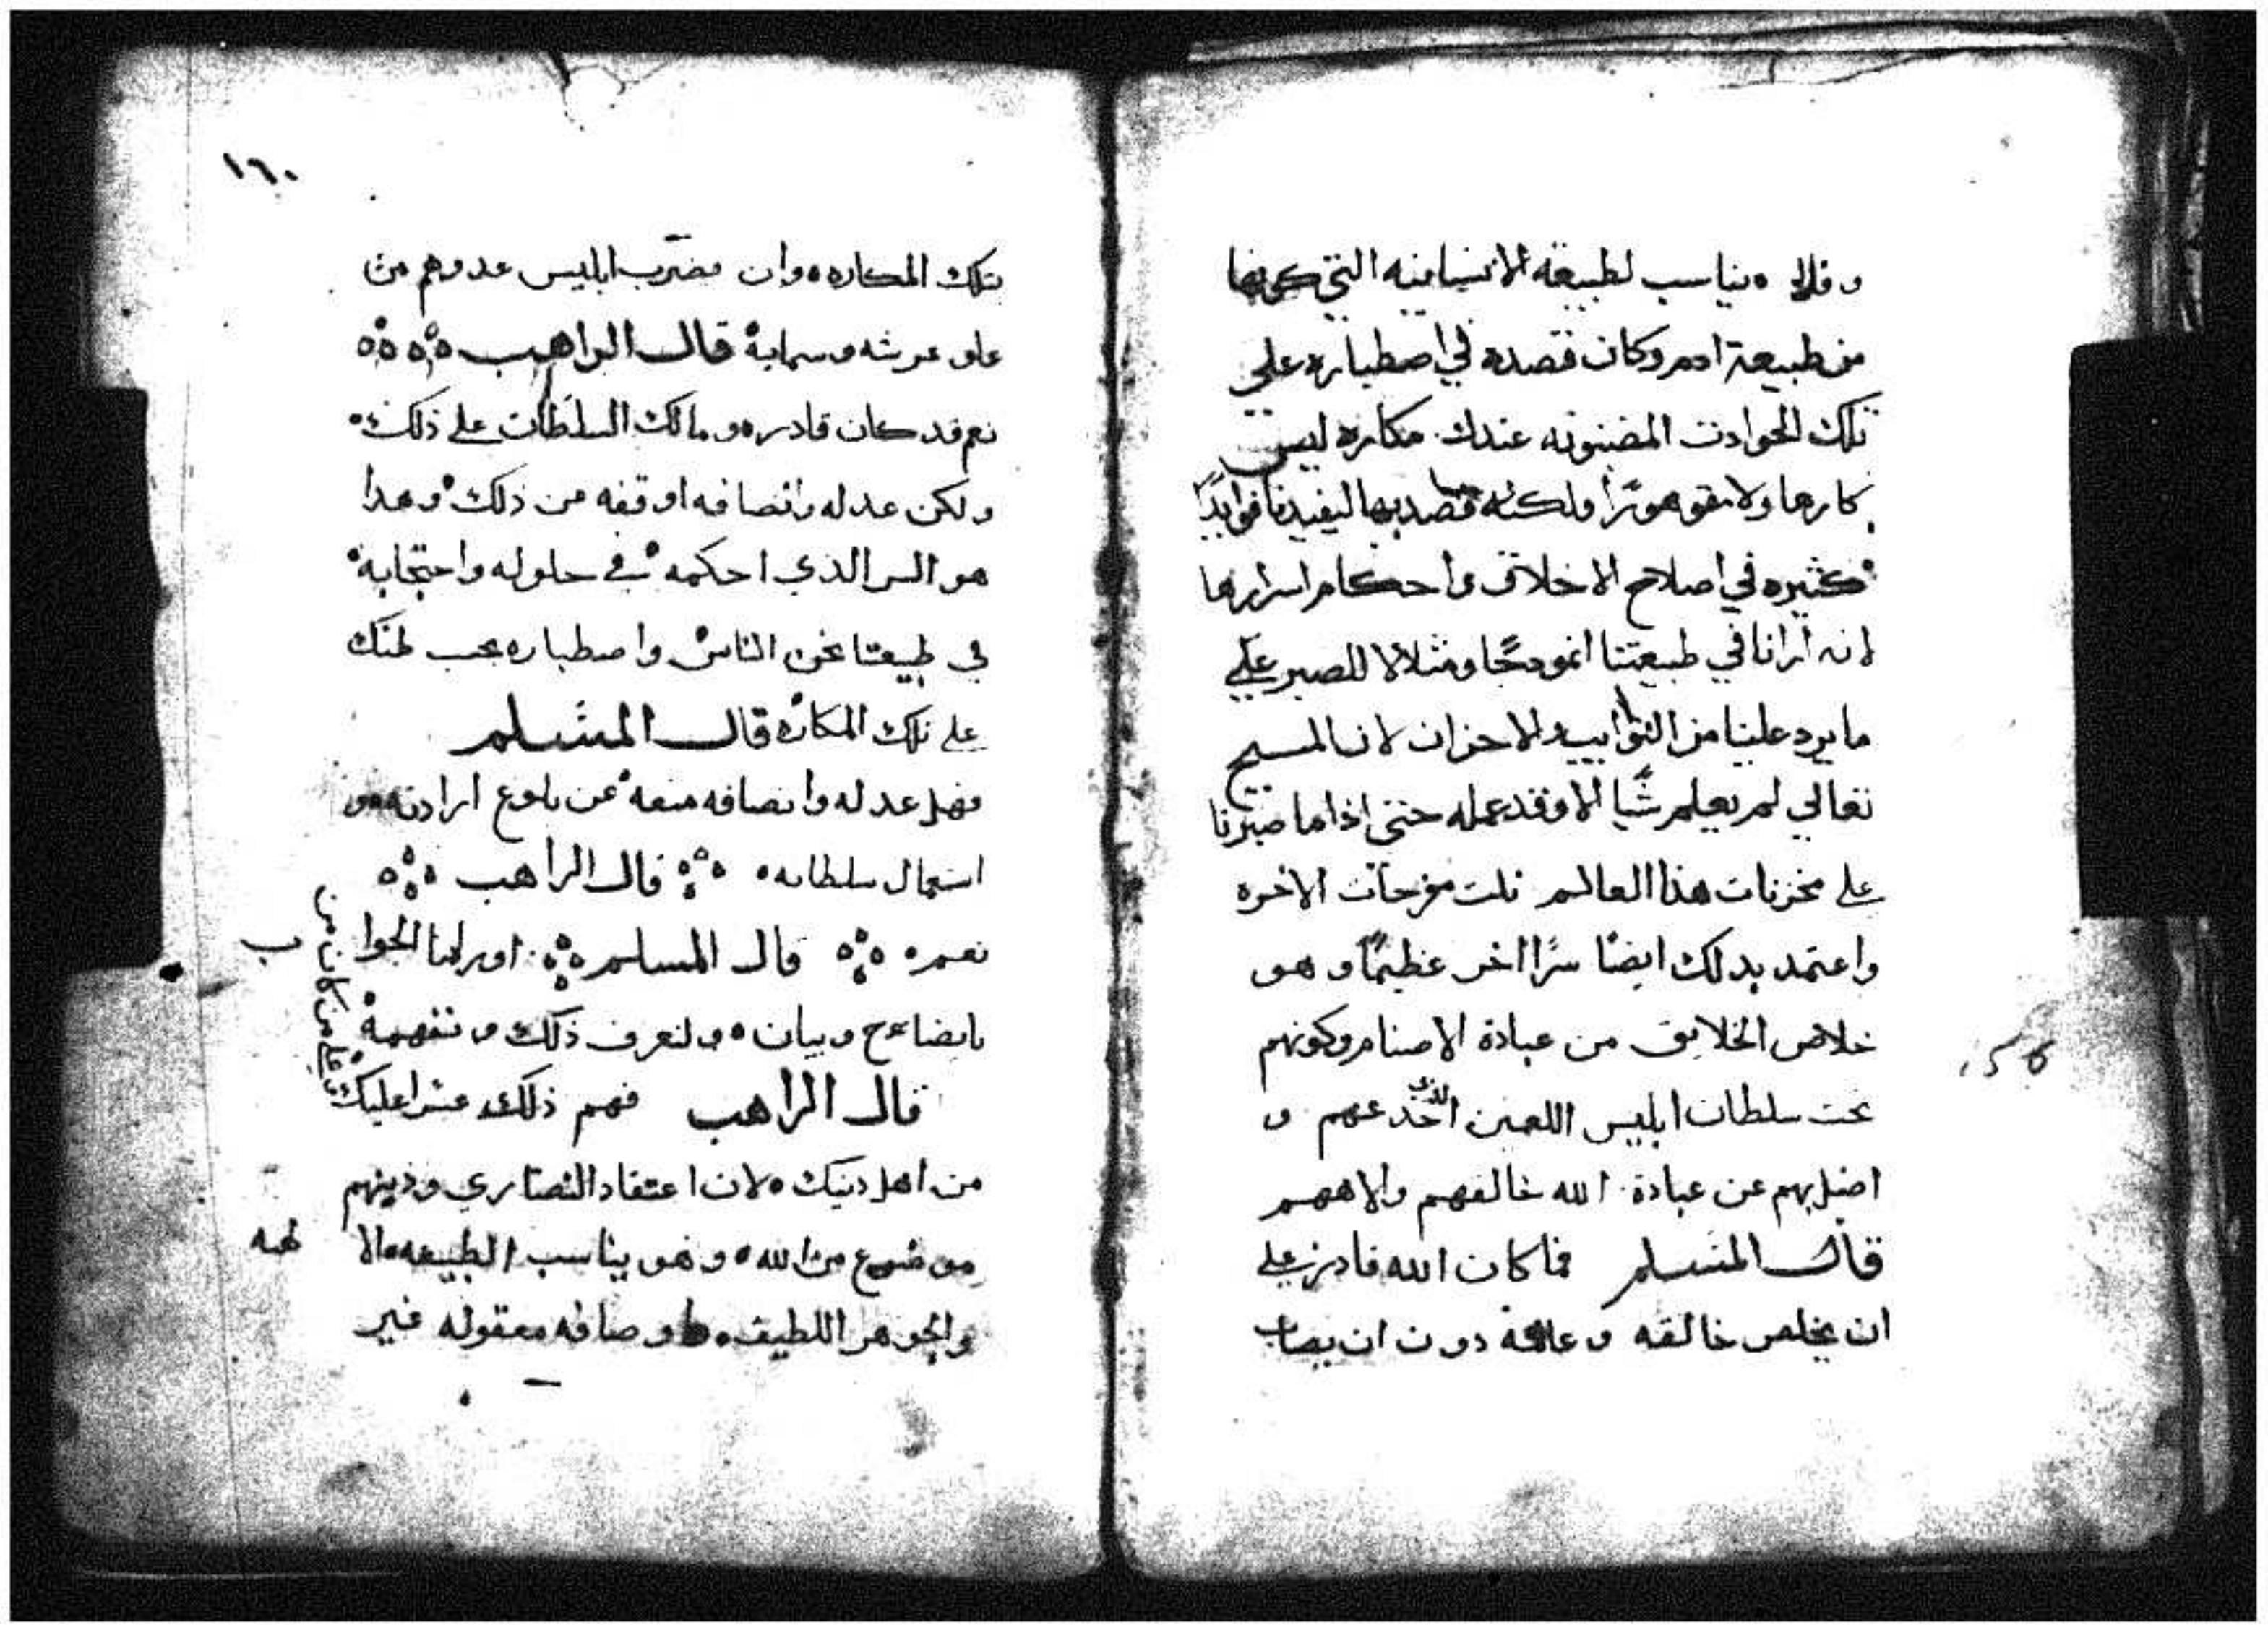 مناسب لطبيعة الانسانيه التي كونها
من طبيعة ادم وكان قصده في اصطباره علي
تلك الحوادت المضنونه عندك مكاره ليس
كارها ولا ولكنه قصد بها ليفيدنا فوايدًا
كثيره في اصلاح الاخلاق واحكام اسرارها
لانه ارانا في طبيعتنا انموجحًا ومثلالا للصبر علي
ما يرد علينا من النوايب والاحزان لان المسيح
تعالي لم يعلم شيا الا وقد عمله حتي اذا ما صبرنا
علي محزنات هذا العالم نلت مفرحات الاخره
واعتمد بدلك ايضًا سرًا اخر عظيمًا وهو
خلاص الخلايق من عبادة الاصنام وكونهم
تحت سلطان ابليس اللعين الذي خدعهم و
اضل بهم عن عبادة الله خالقهم والاههم
قال المسلم فما كان الله قادر علي
ان يخلص خالقه دون ان يصاب
١٦٠
بتلك المكاره وان ابليس عدوهم من
علو عرشه وسمايه قال الراهب
نعم قد كان قادره ومالك السلطان علي ذلك
ولكن عدله وانصافه اوقفه من ذلك وهدا
هو السر الذي احكمه في حلوله واحتجابه
في طبيعتنا نحن الناس واصطباره
علي تلك المكاره قال المسلم
فهل عدله وانصافه منعه عن بلوغ ارادته و
استعمال سلطانه قال الراهب
نعم قال المسلم اورلنا الجواب
بايضاح وبيان ولنعرف ذلك ونتفهمه
قال الراهب فهم ذلك عسرا عليك وعلي من كان من
من اهل دنيك لان اعتقاد النصاري ودينهم
موضوع من الله وهو يناسب الطبيعه الالهيه
والجوهر اللطيف واوصافه معقوله غير